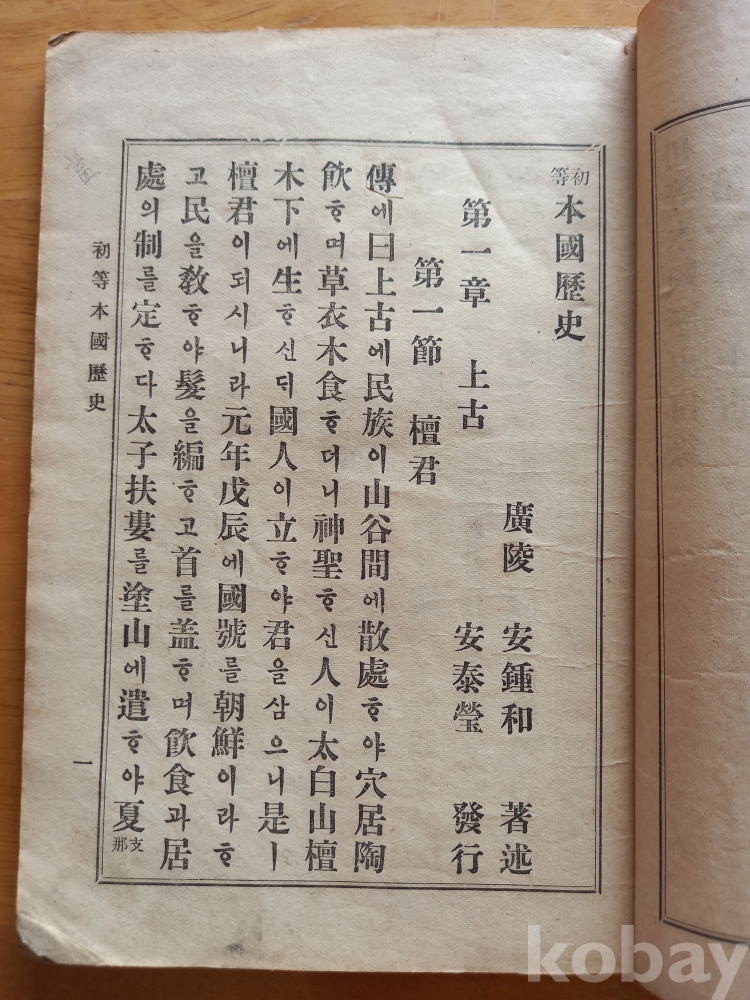 初等 本國歷史
廣陵 安鍾和 著述
第一章 上古 安泰瑩 發行
第一節 檀君
傳에曰上古에民族이山谷間에散處ᄒᆞ야穴居陶
飮ᄒᆞ며草衣木食ᄒᆞ더니神聖ᄒᆞ신人이太白山檀
木下에生ᄒᆞ신ᄃᆡ國人이立ᄒᆞ야君을삼으니是ㅣ
檀君이되시니라元年戊辰에國號를朝鮮이라ᄒᆞ
고民을敎ᄒᆞ야髮을編ᄒᆞ고首를盖ᄒᆞ며飮食과居
處의制를定ᄒᆞ다太子扶婁를塗山에遣ᄒᆞ야夏支那
初等本國歷史
一
kobay